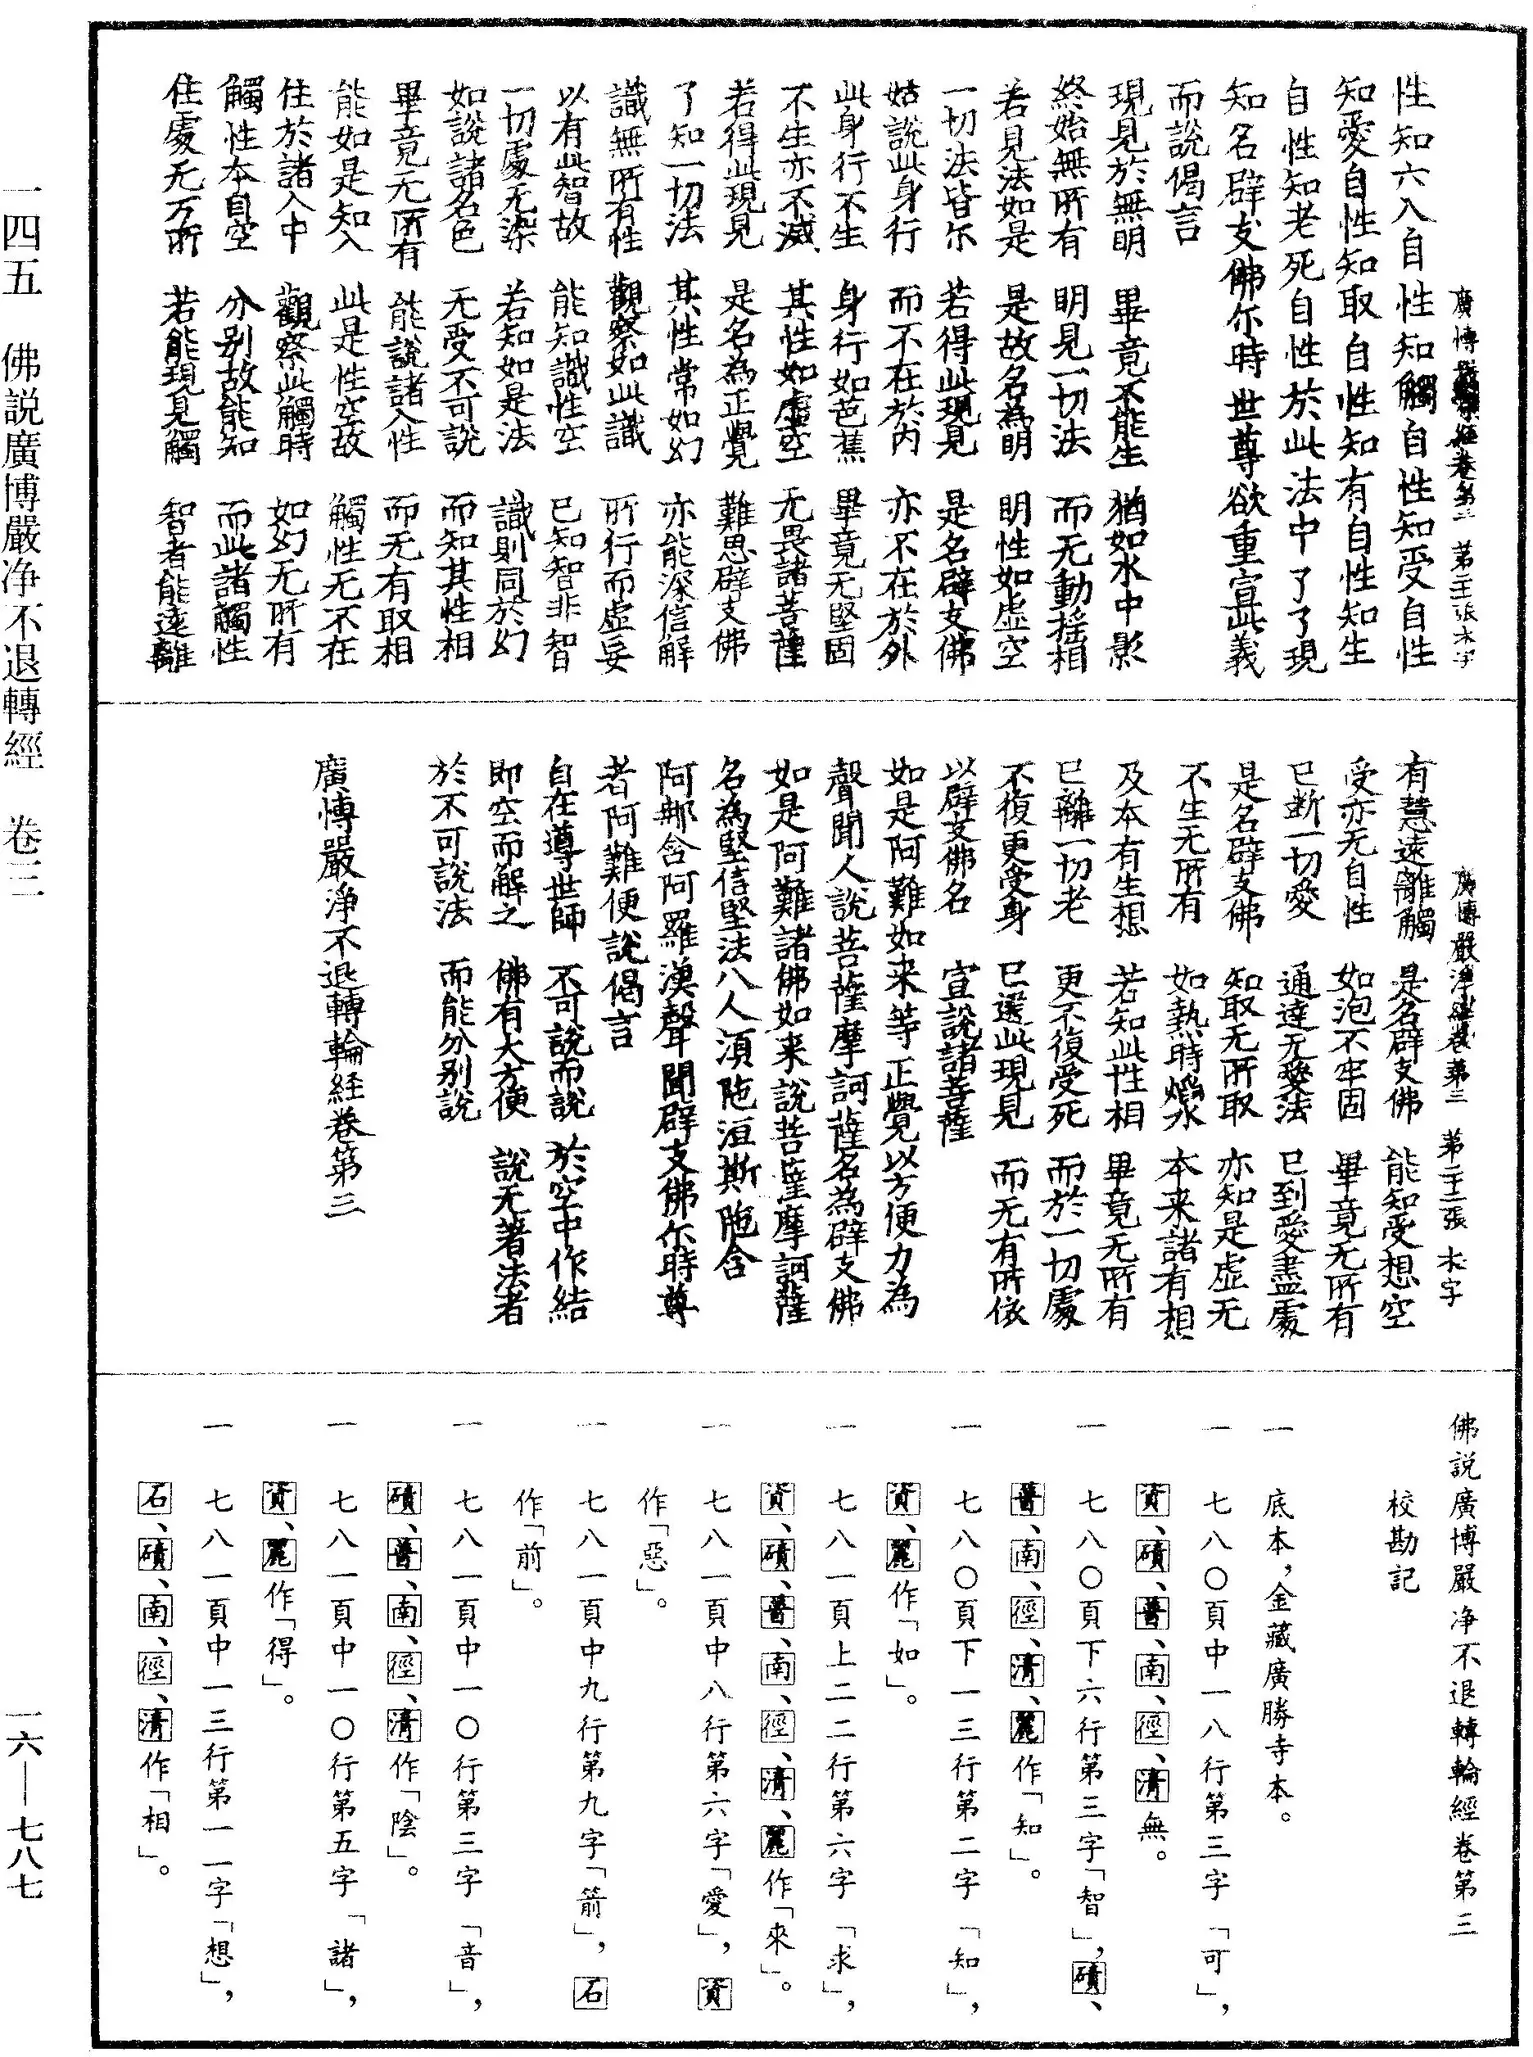 性知六入自性知觸自性知受自性
知愛自性知取自性知有自性知生
自性知老死自性於此法中了了現
知名辟支佛尒時世尊欲重宣此義
而說偈言
現見於無明　畢竟不能生　猶如水中影
終始無所有　明見一切法　而无動揺相
若見法如是　是故名為明　明性如虛空
一切法皆尒　若得此現見　是名辟支佛
姑說此身行　而不在於內　亦不在於外
此身行不生　身行如芭蕉　畢竟无堅固
不生亦不滅　其性如虛空　无畏諸菩薩
若得此現見　是名為正覺　難思辟支佛
了知一切法　其性常如幻　亦能深信解
識無所有性　觀察如此識　所行而虛妄
以有此智故　能知識性空　已知智非智
一切處无染　若知如是法　識則同於幻
如說諸名色　无受不可說　而知其性相
畢竟无所有　能說諸入性　而无有取相
能如是知入　此是性空故　觸性无不在
住於諸入中　觀察此觸時　如幻无所有
觸性本自空　分別故能知　而此諸觸性
住處无万所　若能現見觸　智者能遠離
廣博嚴淨經卷第三　第二十二張　木字
有慧遠離觸　是名辟支佛　能知受想空
受亦无自性　如泡不牢固　畢竟无所有
已斷一切愛　通達无染法　已到愛盡處
是名辟支佛　知取无所取　亦知是虛无
不生无所有　如熱時熖水　本来諸有相
及本有生想　若知此性相　畢竟无所有
已離一切老　更不復受死　而於一切處
不復更受身　已還此現見　而无有所依
以辟支佛名　宣說諸菩薩
如是阿難如来等正覺以方便力為
聲聞人說菩薩摩訶薩名為辟支佛
如是阿難諸佛如来說菩薩摩訶薩
名為堅信堅法八人湏陁洹斯陁含
阿那含阿羅漢聲聞辟支佛尒時尊
者阿難便說偈言
自在導世師　不可說而說　於空中作結
即空而解之　佛有大方便　說无著法者
於不可說法　而能分別說
廣博嚴淨不退轉輪経卷第三
佛說廣博嚴净不退轉輪經卷第三
校勘記
一　底本，金藏廣勝寺本。
一　七八〇頁中一八行第三字「可」，
資、磧、普、南、徑、清無。
一　七八〇頁下六行第三字「智」，磧、
普、南、徑、清、麗作「知」。
一　七八〇頁下一三行第二字「知」，
資、麗作「如」。
一　七八一頁上二二行第六字「求」，
資、磧、普、南、徑、清、麗作「來」。
一　七八一頁中八行第六字「愛」，資
作「惡」。
一　七八一頁中九行第九字「箭」，石
作「前」。
一　七八一頁中一〇行第三字「音」，
磧、普、南、徑、清作「陰」。
一　七八一頁中一〇行第五字「諸」，
資、麗作「得」。
一　七八一頁中一三行第一一字「想」，
石、磧、南、徑、清作「相」。
一四五　佛說廣博嚴净不退轉經　卷三
一六—七八七